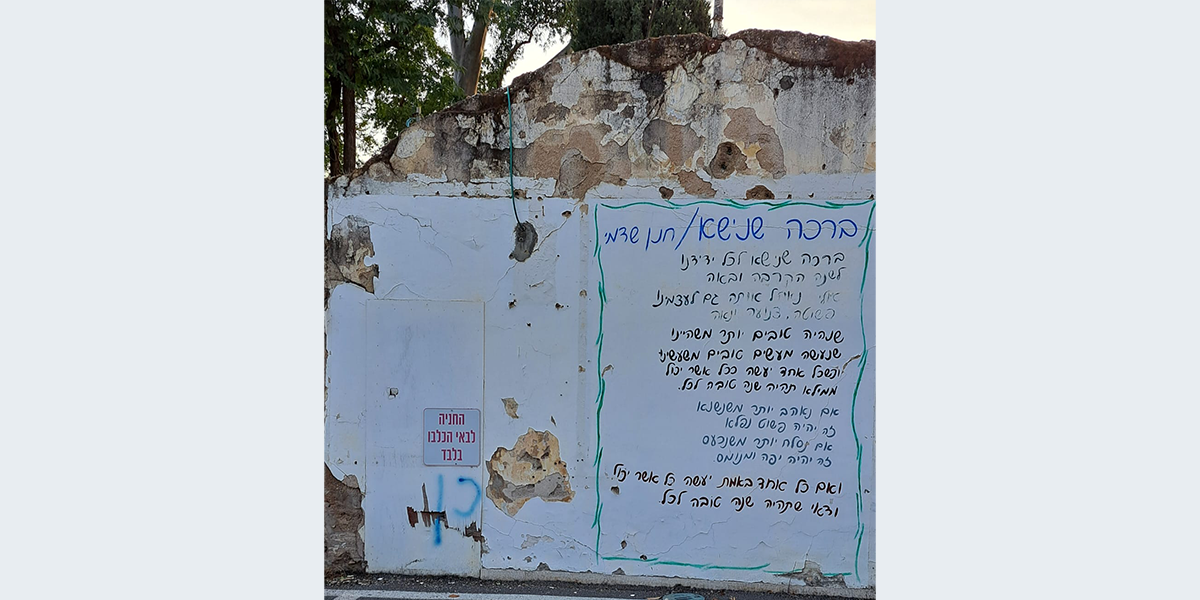 ברכה שנישא/חנן שדמי
ברכה שנישא לכל ידידנו
לשנה הקרבה ובאה
אולי נייחל אותה גם לעצמנו
פשוטה, צנועה ונאה
שנהיה טובים יותר משהיינו
שנעשה מעשים טובים משעשינו
וכשכל אחד יעשה ככל אשר יכול
ממילא תהיה שנה טובה לכל.
אם נאהב יותר משנשנא
זה יהיה פשוט נפלא
אם נסלח יותר משנכעס
זה יהיה יפה ומנומס
ואם כל אחד באמת יעשה כל אשר יכול
ודאי שתהיה שנה טובה לכל
החניה
לבאי הכלבו
בלבד
כן